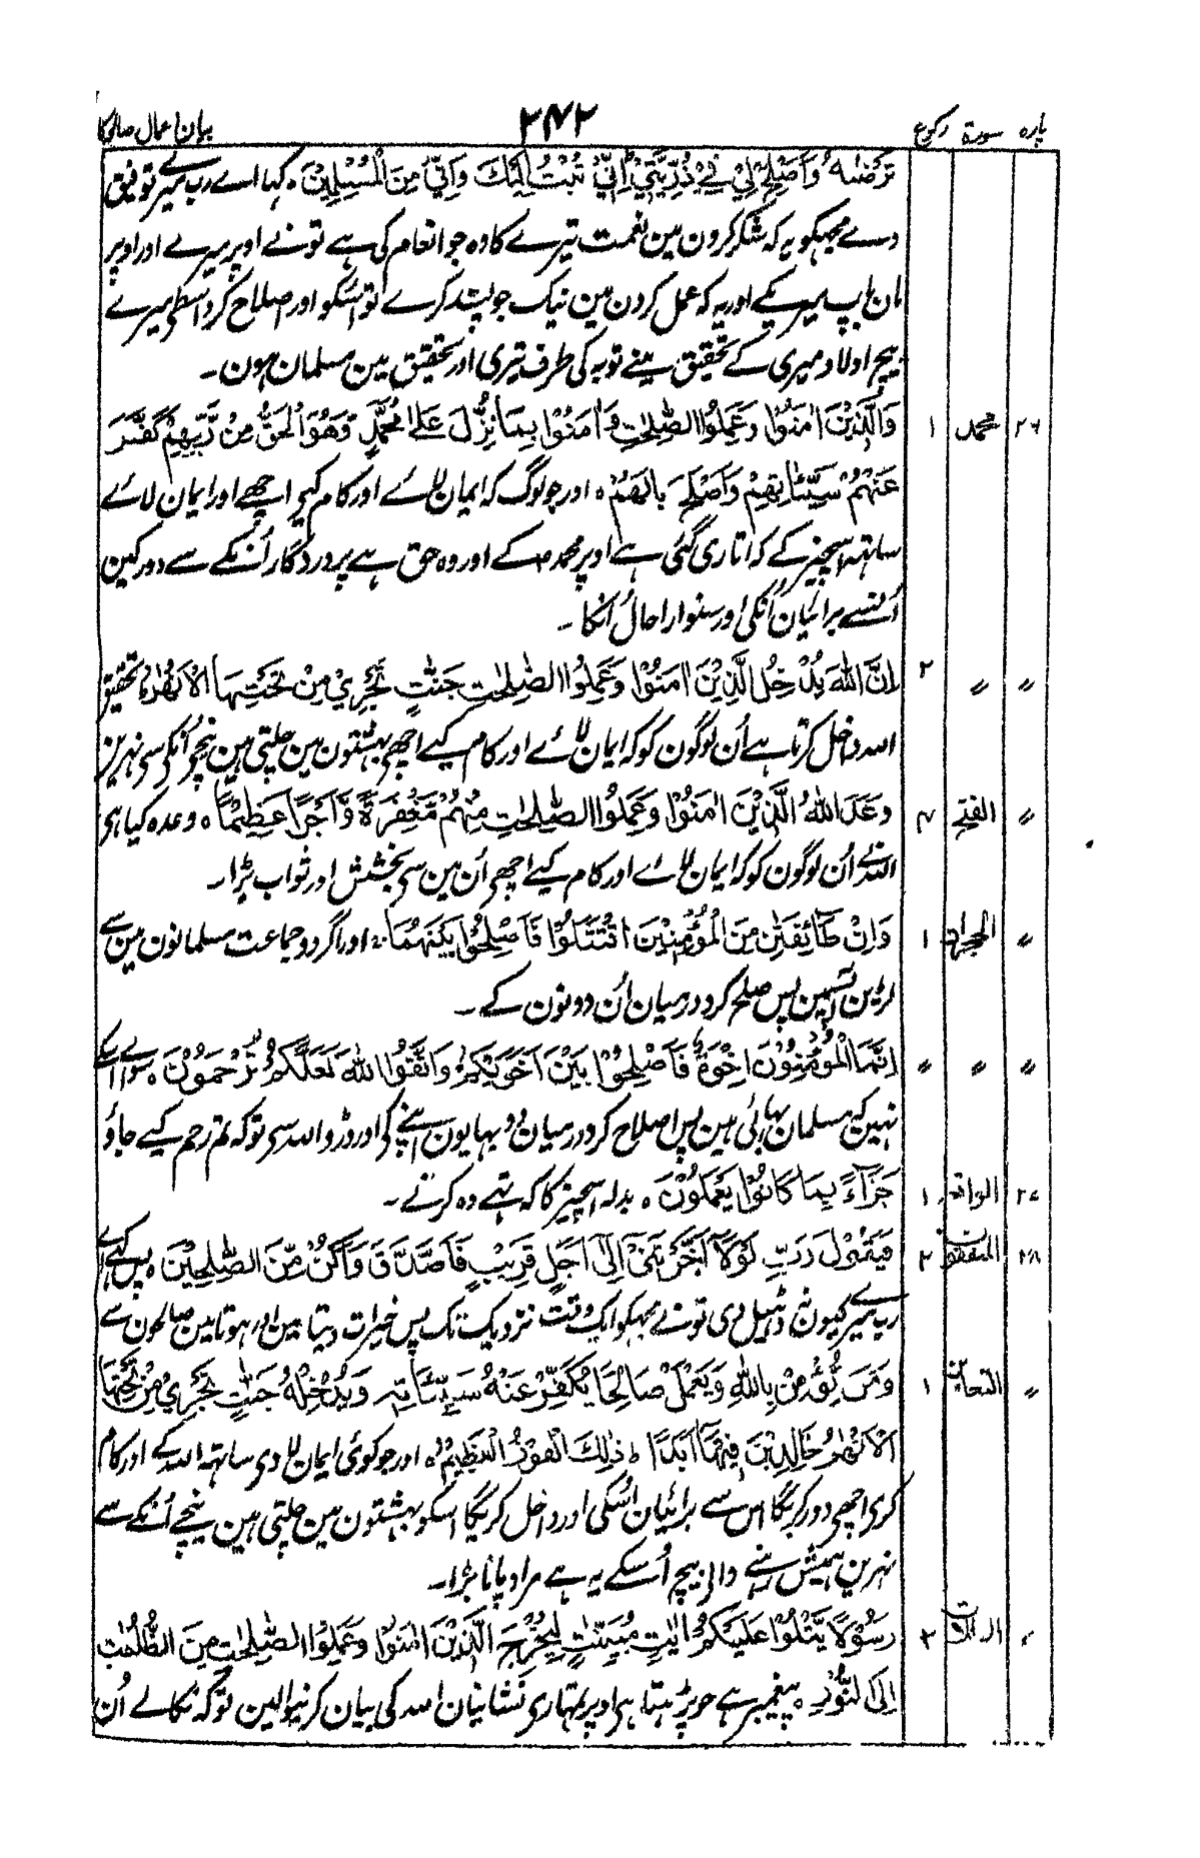 پارہ سورۃ رکوع ۲۷۲ بیان اعمال صالح کا
تَرْضٰىهُ وَاَصْلِحْ لِيْ فِيْ ذُرِّيَّتِيْ اِنِّيْ تُبْتُ اِلَيْكَ وَاِنِّيْ مِنَ الْمُسْلِمِيْنَ ۰ کہا اے رب میرے توفیق
دے مجہکو یہ کہ شکر کرون مین نعمت تیرے کا وہ جو انعام کی ہے تونے اوپر میرے اور اوپر
مان باپ میریکے اور یہ کہ عمل کرون مین نیک جو پسند کرے تو اسکو اور اصلاح کر واسطے میرے
بیچ اولاد میری کے تحقیق مینے توبہ کی طرف تیری اور تحقیق مین مسلمان ہون۔
۲۶ محمد ۱ وَالَّذِيْنَ اٰمَنُوْا وَعَمِلُوا الصّٰلِحٰتِ وَاٰمَنُوْا بِمَا نُزِّلَ عَلٰى مُحَمَّدٍ وَّهُوَ الْحَقُّ مِنْ رَّبِّهِمْ كَفَّرَ
عَنْهُمْ سَيِّئَاتِهِمْ وَاَصْلَحَ بَالَهُمْ ۰ اور جو لوگ کہ ایمان لائے اور کام کیے اچھے اور ایمان لائے
ساتہہ اسچیز کے کہ اتاری گئی ہے اوپر محمدؐ کے اور وہ حق ہے پروردگار اُنکے سے دور کین
اُنسے برائیان اُنکی اور سنوارا حال اُنکا۔
〃 〃 ۲ اِنَّ اللّٰهَ يُدْخِلُ الَّذِيْنَ اٰمَنُوْا وَعَمِلُوا الصّٰلِحٰتِ جَنّٰتٍ تَجْرِيْ مِنْ تَحْتِهَا الْاَنْهٰرُ ۰ تحقیق
اللہ داخل کرتا ہے اُن لوگون کو کہ ایمان لائے اور کام کیے اچھے بہشتون مین چلتی ہین نیچے اُنکے سے نہرین
〃 الفتح ۴ وَعَدَ اللّٰهُ الَّذِيْنَ اٰمَنُوْا وَعَمِلُوا الصّٰلِحٰتِ مِنْهُمْ مَّغْفِرَةً وَّاَجْرًا عَظِيْمًا ۰ وعدہ کیا ہے
اللہ نے اُن لوگون کو کہ ایمان لائے اور کام کیے اچھے اُن مین سے بخشش اور ثواب بڑا۔
〃 الحجرات ۱ وَاِنْ طَآئِفَتٰنِ مِنَ الْمُؤْمِنِيْنَ اقْتَتَلُوْا فَاَصْلِحُوْا بَيْنَهُمَا ۰ اور اگر دو جماعت مسلمانون مین سے
لڑین آپسمین پس صلح کردو درمیان اُن دونون کے۔
〃 〃 〃 اِنَّمَا الْمُؤْمِنُوْنَ اِخْوَةٌ فَاَصْلِحُوْا بَيْنَ اَخَوَيْكُمْ وَاتَّقُوا اللّٰهَ لَعَلَّكُمْ تُرْحَمُوْنَ ۰ سواے اسکے
نہین کہ مسلمان بہائی ہین پس اصلاح کردو درمیان دو بہایون اپنے کی اور ڈرو اللہ سے توکہ تم رحم کیے جاؤ
۲۷ الواقعہ ۱ جَزَآءً بِمَا كَانُوْا يَعْمَلُوْنَ ۰ بدلہ اسچیز کا کہ تہے وہ کرتے۔
۲۸ المنفقون ۲ فَيَقُوْلَ رَبِّ لَوْلَا اَخَّرْتَنِيْ اِلٰى اَجَلٍ قَرِيْبٍ فَاَصَّدَّقَ وَاَكُنْ مِّنَ الصّٰلِحِيْنَ ۰ پس کہے اے
رب میرے کیون نہ ڈہیل دی تونے مجہکو ایک وقت نزدیک تک پس خیرات دیتا مین اور ہوتا مین صالحون سے
〃 التغابن ۱ وَمَنْ يُّؤْمِنْ بِاللّٰهِ وَيَعْمَلْ صَالِحًا يُّكَفِّرْ عَنْهُ سَيِّئَاتِهٖ وَيُدْخِلْهُ جَنّٰتٍ تَجْرِيْ مِنْ تَحْتِهَا
الْاَنْهٰرُ خَالِدِيْنَ فِيْهَا اَبَدًا ط ذٰلِكَ الْفَوْزُ الْعَظِيْمُ ۰ اور جو کوئی ایمان لاوے ساتہہ اللہ کے اور کام
کرے اچھے دور کریگا اس سے برائیان اُسکی اور داخل کریگا اسکو بہشتون مین چلتی ہین نیچے اُنکے سے
نہرین ہمیش رہنے والے بیچ اُسکے یہ ہے مراد پانا بڑا۔
〃 الطلاق ۲ رَسُوْلًا يَّتْلُوْا عَلَيْكُمْ اٰيٰتِ مُبَيِّنٰتٍ لِّيُخْرِجَ الَّذِيْنَ اٰمَنُوْا وَعَمِلُوا الصّٰلِحٰتِ مِنَ الظُّلُمٰتِ
اِلَى النُّوْرِ ۰ پیغمبر ہے جو پڑہتا ہے اوپر تمہاری نشانیان اللہ کی بیان کرنیوالین توکہ نکالے اُن